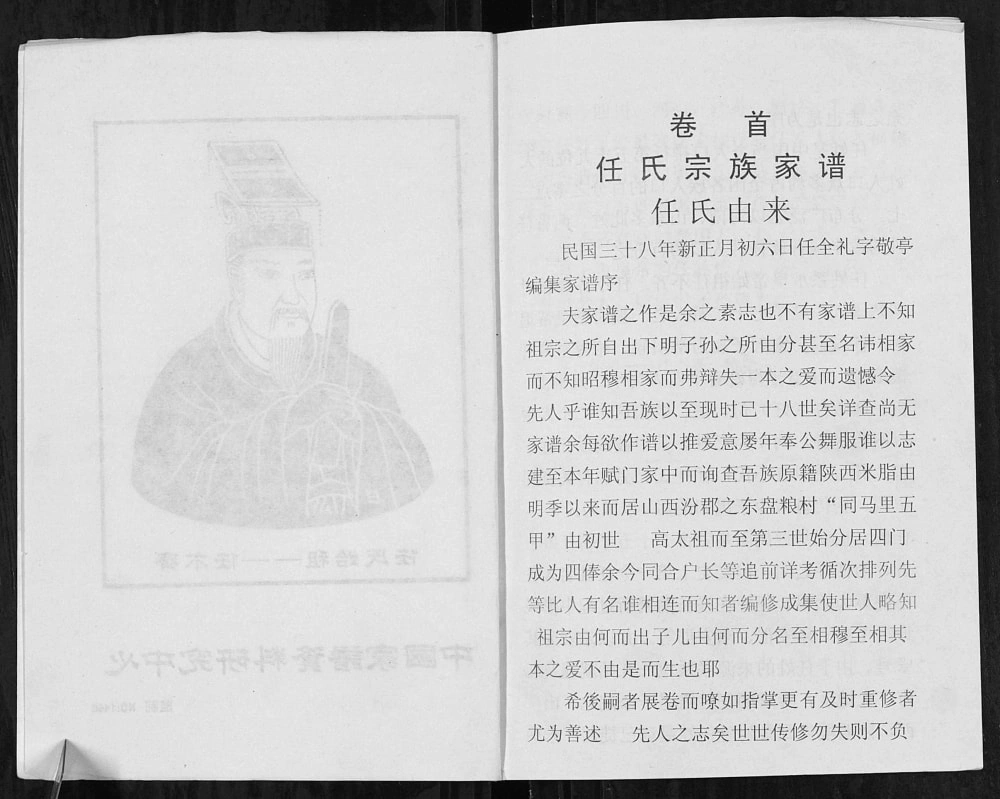 卷 首
任氏宗族家谱
任氏由来
民国三十八年新正月初六日任全礼字敬亭
编集家谱序
夫家谱之作是余之素志也不有家谱上不知
祖宗之所自出下明子孙之所由分甚至名讳相家
而不知昭穆相家而弗辩失一本之爱而遗憾令
先人乎谁知吾族以至现时已十八世矣详查尚无
家谱余每欲作谱以推爱意屡年奉公舞服谁以志
建至本年赋门家中而询查吾族原籍陕西米脂由
明季以来而居山西汾郡之东盘粮村“同马里五
甲”由初世 高太祖而至第三世始分居四门
成为四俸余今同合户长等追前详考循次排列先
等比人有名谁相连而知者编修成集使世人略知
祖宗由何而出子儿由何而分名至相穆至相其
本之爱不由是而生也耶
希後嗣者展卷而嘹如指掌更有及时重修者
尤为善述 先人之志矣世世传修勿失则不负
任氏始祖——任不齐
中國家譜資料研究中心